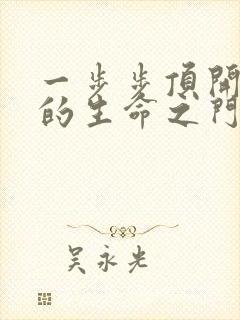 一步步頂開
的生命之門
吴永光